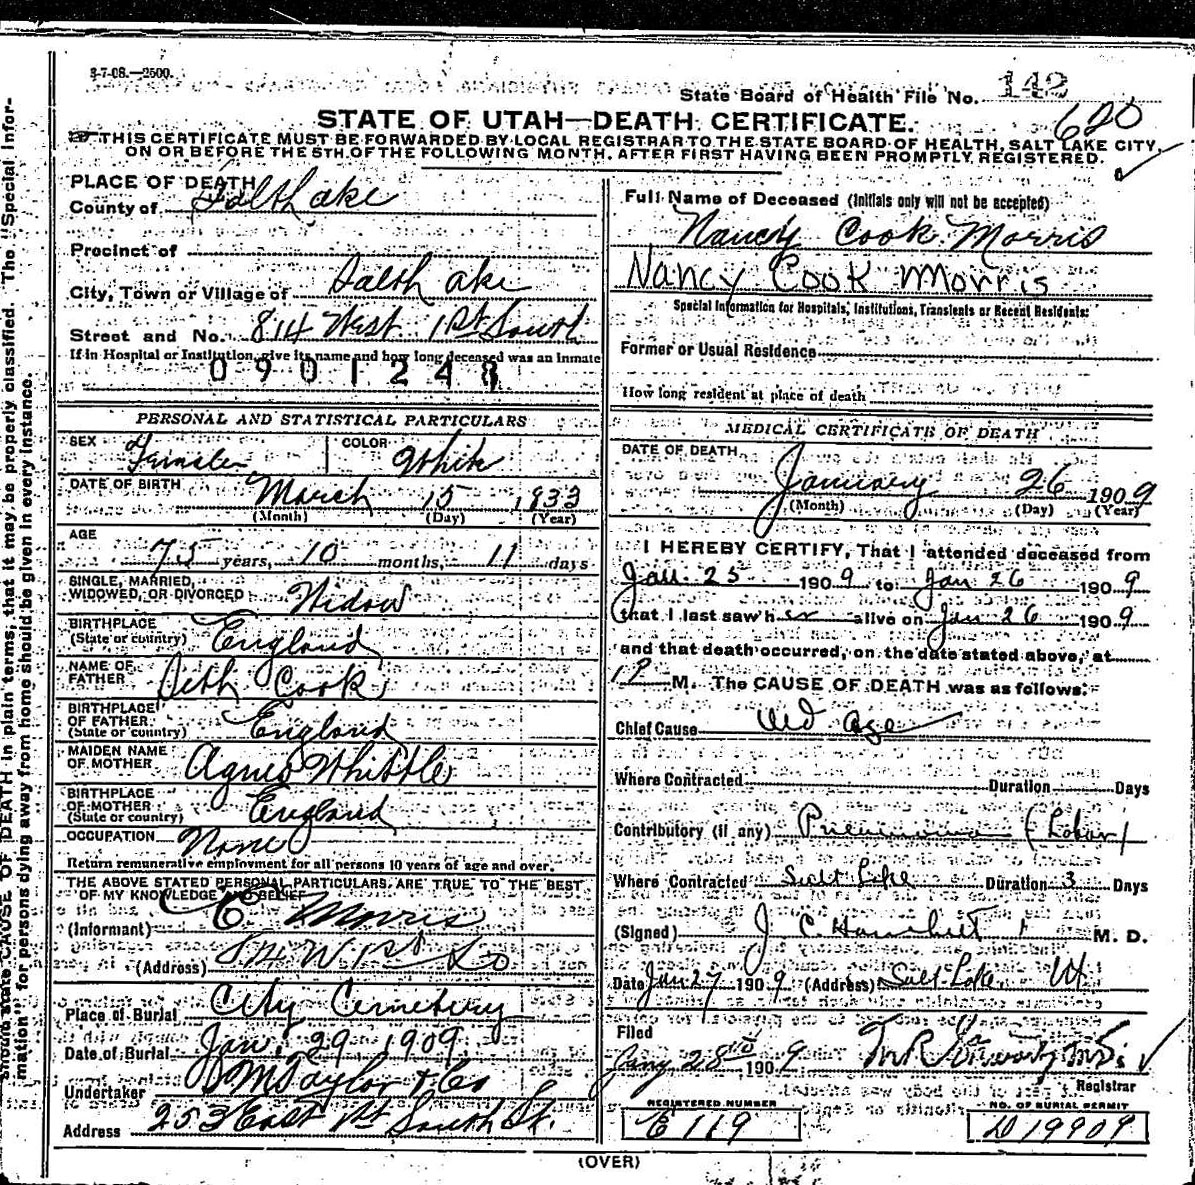 3-7-08.—2500.
State Board of Health File No. 142
620
STATE OF UTAH—DEATH CERTIFICATE.
THIS CERTIFICATE MUST BE FORWARDED BY LOCAL REGISTRAR TO THE STATE BOARD OF HEALTH, SALT LAKE CITY,
ON OR BEFORE THE 5TH OF THE FOLLOWING MONTH, AFTER FIRST HAVING BEEN PROMPTLY REGISTERED.
PLACE OF DEATH
County of Salt Lake
Precinct of
City, Town or Village of Salt Lake
Street and No. 814 West 1st South
If in Hospital or Institution, give its name and how long deceased was an Inmate
0901248
PERSONAL AND STATISTICAL PARTICULARS
SEX Female COLOR White
DATE OF BIRTH March 15 1833
(Month) (Day) (Year)
AGE
75 years, 10 months, 11 days
SINGLE, MARRIED,
WIDOWED, OR DIVORCED Widow
BIRTHPLACE
(State or country) England
NAME OF
FATHER Seth Cook
BIRTHPLACE
OF FATHER
(State or country) England
MAIDEN NAME
OF MOTHER Agnes Whittle
BIRTHPLACE
OF MOTHER
(State or country) England
OCCUPATION None
Return remunerative employment for all persons 10 years of age and over.
THE ABOVE STATED PERSONAL PARTICULARS ARE TRUE TO THE BEST
OF MY KNOWLEDGE AND BELIEF
(Informant) Morris
(Address) 814 W 1st So
Place of Burial City Cemetery
Date of Burial Jan. 29 1909.
Undertaker Taylor & Co
Address 253 East 1st South St.
Full Name of Deceased (Initials only will not be accepted)
Nancy Cook Morris
Nancy Cook Morris
Special Information for Hospitals, Institutions, Transients or Recent Residents:
Former or Usual Residence
How long resident at place of death
MEDICAL CERTIFICATE OF DEATH
DATE OF DEATH
January 26 1909
(Month) (Day) (Year)
I HEREBY CERTIFY, That I attended deceased from
Jan 25 1909 to Jan 26 1909
that I last saw her alive on Jan 26 1909
and that death occurred, on the date stated above, at
M. The CAUSE OF DEATH was as follows:
Chief Cause Old age
Where Contracted Duration Days
Contributory (if any) Pneumonia (Lobar)
Where Contracted Salt Lake Duration 3 Days
(Signed) J C Hanchett M. D.
Date Jan 27 1909 (Address) Salt Lake Ut
Filed
Jany 28 1909
Registrar
REGISTERED NUMBER
E 119
NO. OF BURIAL PERMIT
D 19909
(OVER)
should state CAUSE OF DEATH in plain terms, that it may be properly classified. The "Special Infor-
mation" for persons dying away from home should be given in every instance.